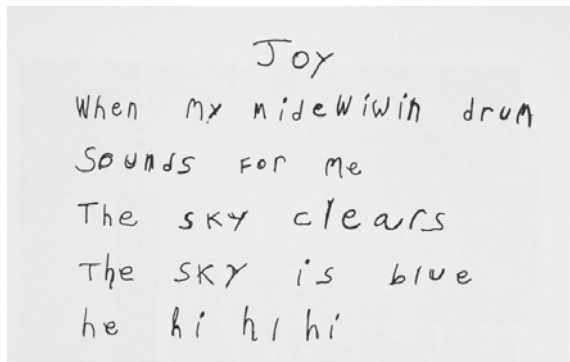 Joy
When my midewiwin drum
Sounds for me
The sky clears
The sky is blue
he hi hi hi